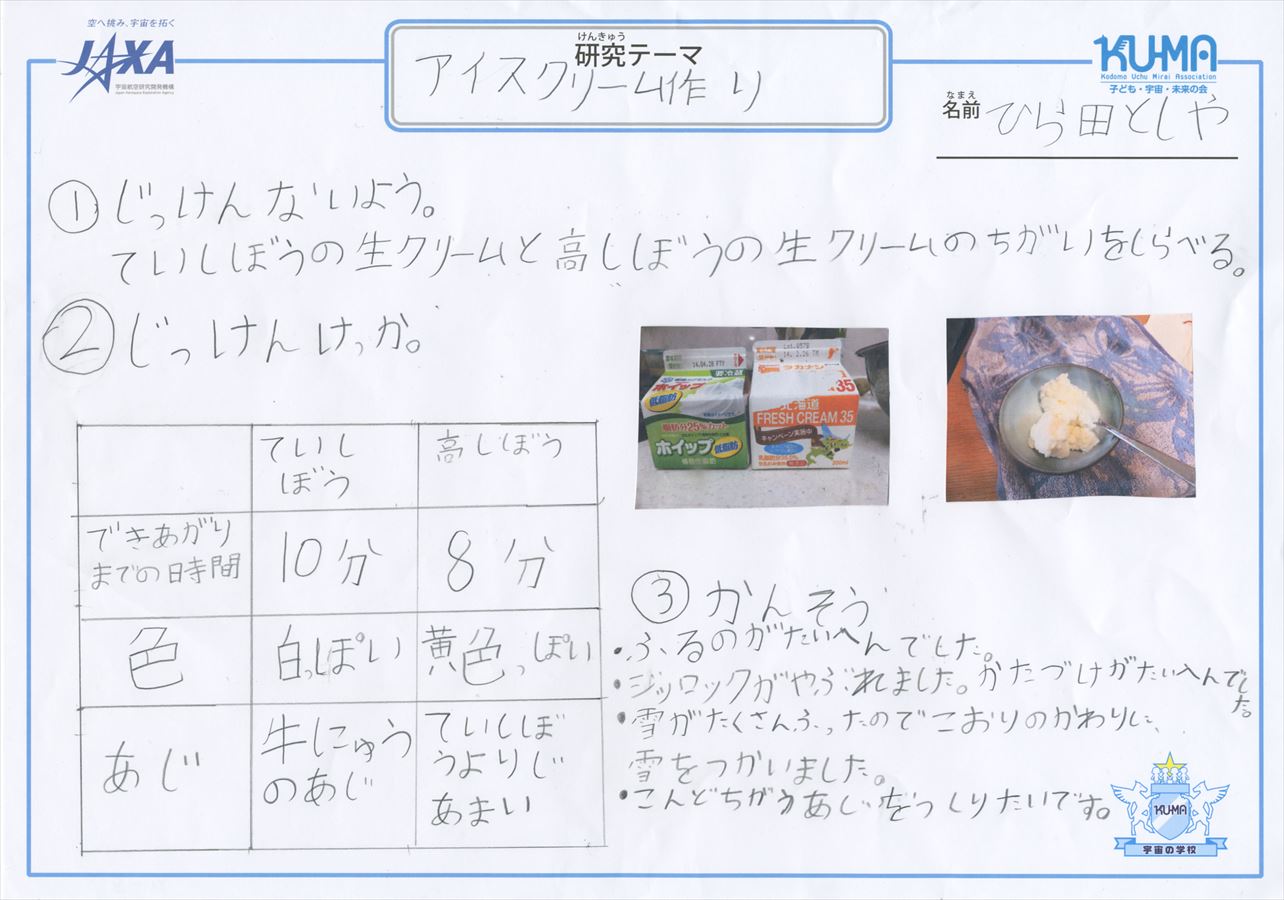 空へ挑み、宇宙を拓く
JAXA
宇宙航空研究開発機構
Japan Aerospace Exploration Agency
けんきゅう
研究テーマ
アイスクリーム作り
KU-MA
Kodomo Uchu Mirai Association
子ども・宇宙・未来の会
なまえ
名前
ひら田としや
① じっけんないよう。
ていしぼうの生クリームと高しぼうの生クリームのちがいをしらべる。
② じっけんけっか。
ていし
ぼう
高しぼう
できあがり
までの時間
10分
8分
色
白っぽい
黄色っぽい
あじ
牛にゅう
のあじ
ていしぼ
うよりじ
あまい
14.04.28
要冷蔵
ホイップ
低脂肪
脂肪分25%カット
ホイップ
低脂肪
タカナシ
35
北海道
FRESH CREAM 35
キャンペーン実施中
200ml
③ かんそう
・ふるのがたいへんでした。
・ジッロックがやぶれました。かたづけがたいへんでし
た。
・雪がたくさんふったのでこおりのかわりに、
雪をつかいました。
・こんどちがうあじをつくりたいです。
KU-MA
宇宙の学校